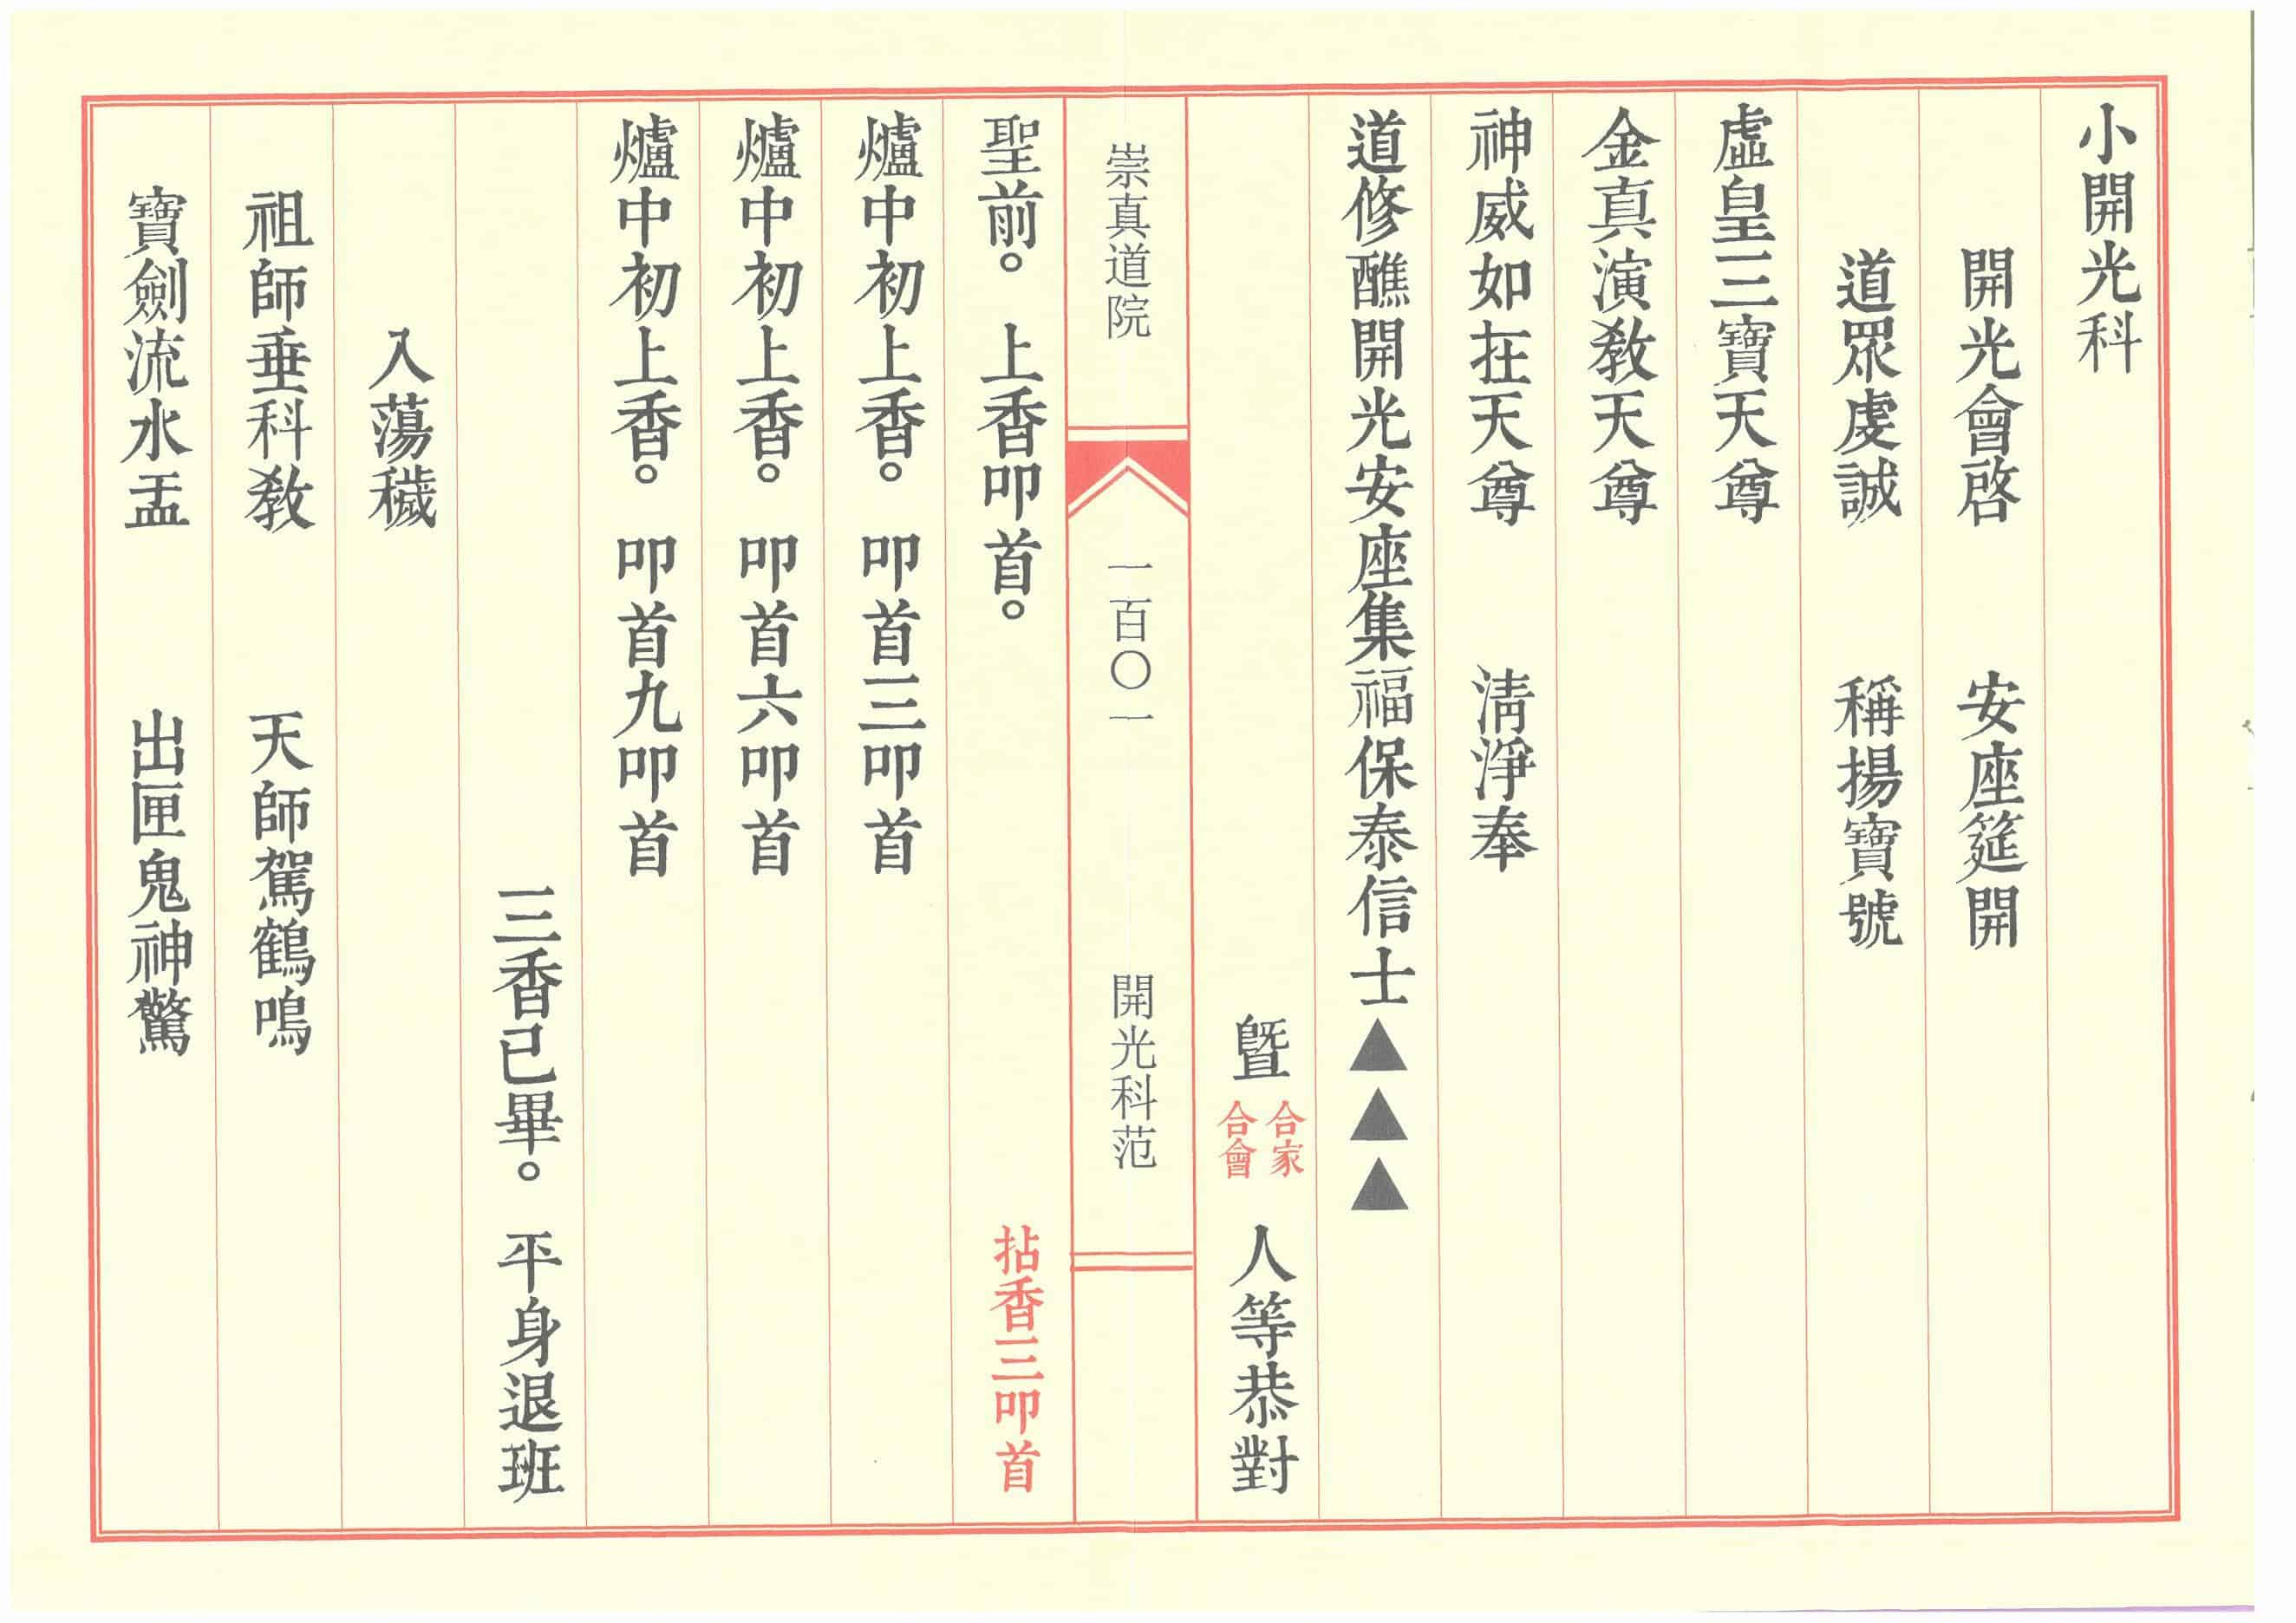 小開光科
開光會啓　安座筵開
道眾虔誠　稱揚寶號
虛皇三寶天尊
金真演教天尊
神威如在天尊　清淨奉
道修醮開光安座集福保泰信士▲▲▲
暨 合家 合會 人等恭對
崇真道院　一百〇一　開光科范
聖前。　上香叩首。　拈香三叩首
爐中初上香。　叩首三叩首
爐中初上香。　叩首六叩首
爐中初上香。　叩首九叩首
三香已畢。　平身退班
入蕩穢
祖師垂科教　天師駕鶴鳴
寶劍流水盂　出匣鬼神驚